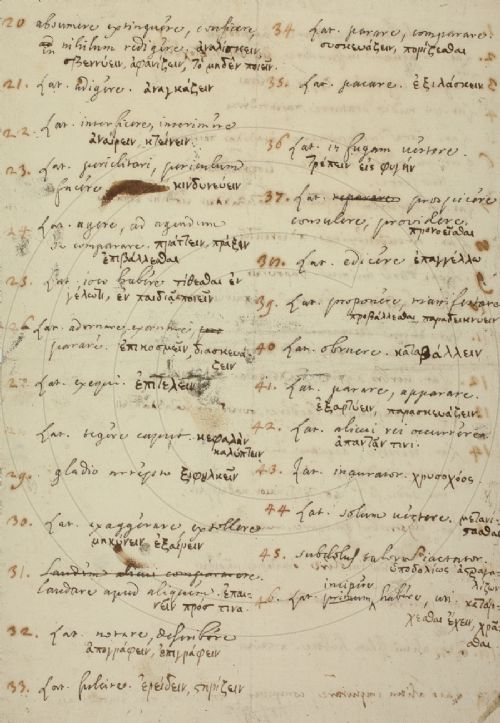 20 absumere extinguere, conficere,
in nihilum redigere. ἀναλίσκειν,
σβεννύειν, ἀφανίζειν, τὸ μηδὲν ποιεῖν.
21. Lat. adigere. ἀναγκάζειν
22. Lat. interficere, interimere
ἀναιρεῖν, κτείνειν.
23. Lat. periclitari, periculum
facere. κινδυνεύειν
24. Lat. agere, ad agendum
se comparare. πράττειν, πρᾶξιν
ἐπιβάλλεσθαι
25. Lat. ioco habere τίθεσθαι ἐν
γέλωτι, ἐν παιδιᾷ ποιεῖν
26. Lat. adornare
parare. ἐπικοσμεῖν, διασκευά
ζειν
27. Lat. exequi. ἐπιτελεῖν
Lat. tegere caput. κεφαλὴν
καλύπτειν
29. gladio ξιφουλκεῖν
30. Lat. exaggerare, extollere
μηκύνειν, ἐξαίρειν
31.
laudare apud aliquem. ἐπαι-
νεῖν πρός τινα.
32. Lat. notare, describere
ἀπογράφειν, ἐπιγράφειν
33. Lat. fulcire. ἐρείδειν, στηρίζειν
34 Lat. parare, comparare.
συσκευάζειν, πορίζεσθαι
35. Lat. placare. ἐξιλάσκειν
36 Lat. in fugam vertere.
τρέπειν εἰς φυγήν
37. Lat. prospicere
consulere, providere,
προνοεῖσθαι
38. Lat. edicere. ἐπαγγέλλω
39. Lat. proponere, manifestare
προβάλλεσθαι, παραδεικνύειν
40 Lat. obruere. καταβάλλειν
41. Lat. parare, apparare.
ἐξαρτύειν, παρασκευάζειν.
42. Lat. alicui rei occurrere
ἀπαντᾶν τινι.
43. Lat. inaurator. χρυσοχόος.
44 Lat. solum vertere. μετανί-
στασθαι
45. subdolus
ὑποδόλιως ἀστραγα-
λίζων
46. Lat. habere, uti. κατα
χρᾶσθαι ἔχειν, χρᾶ
σθαι